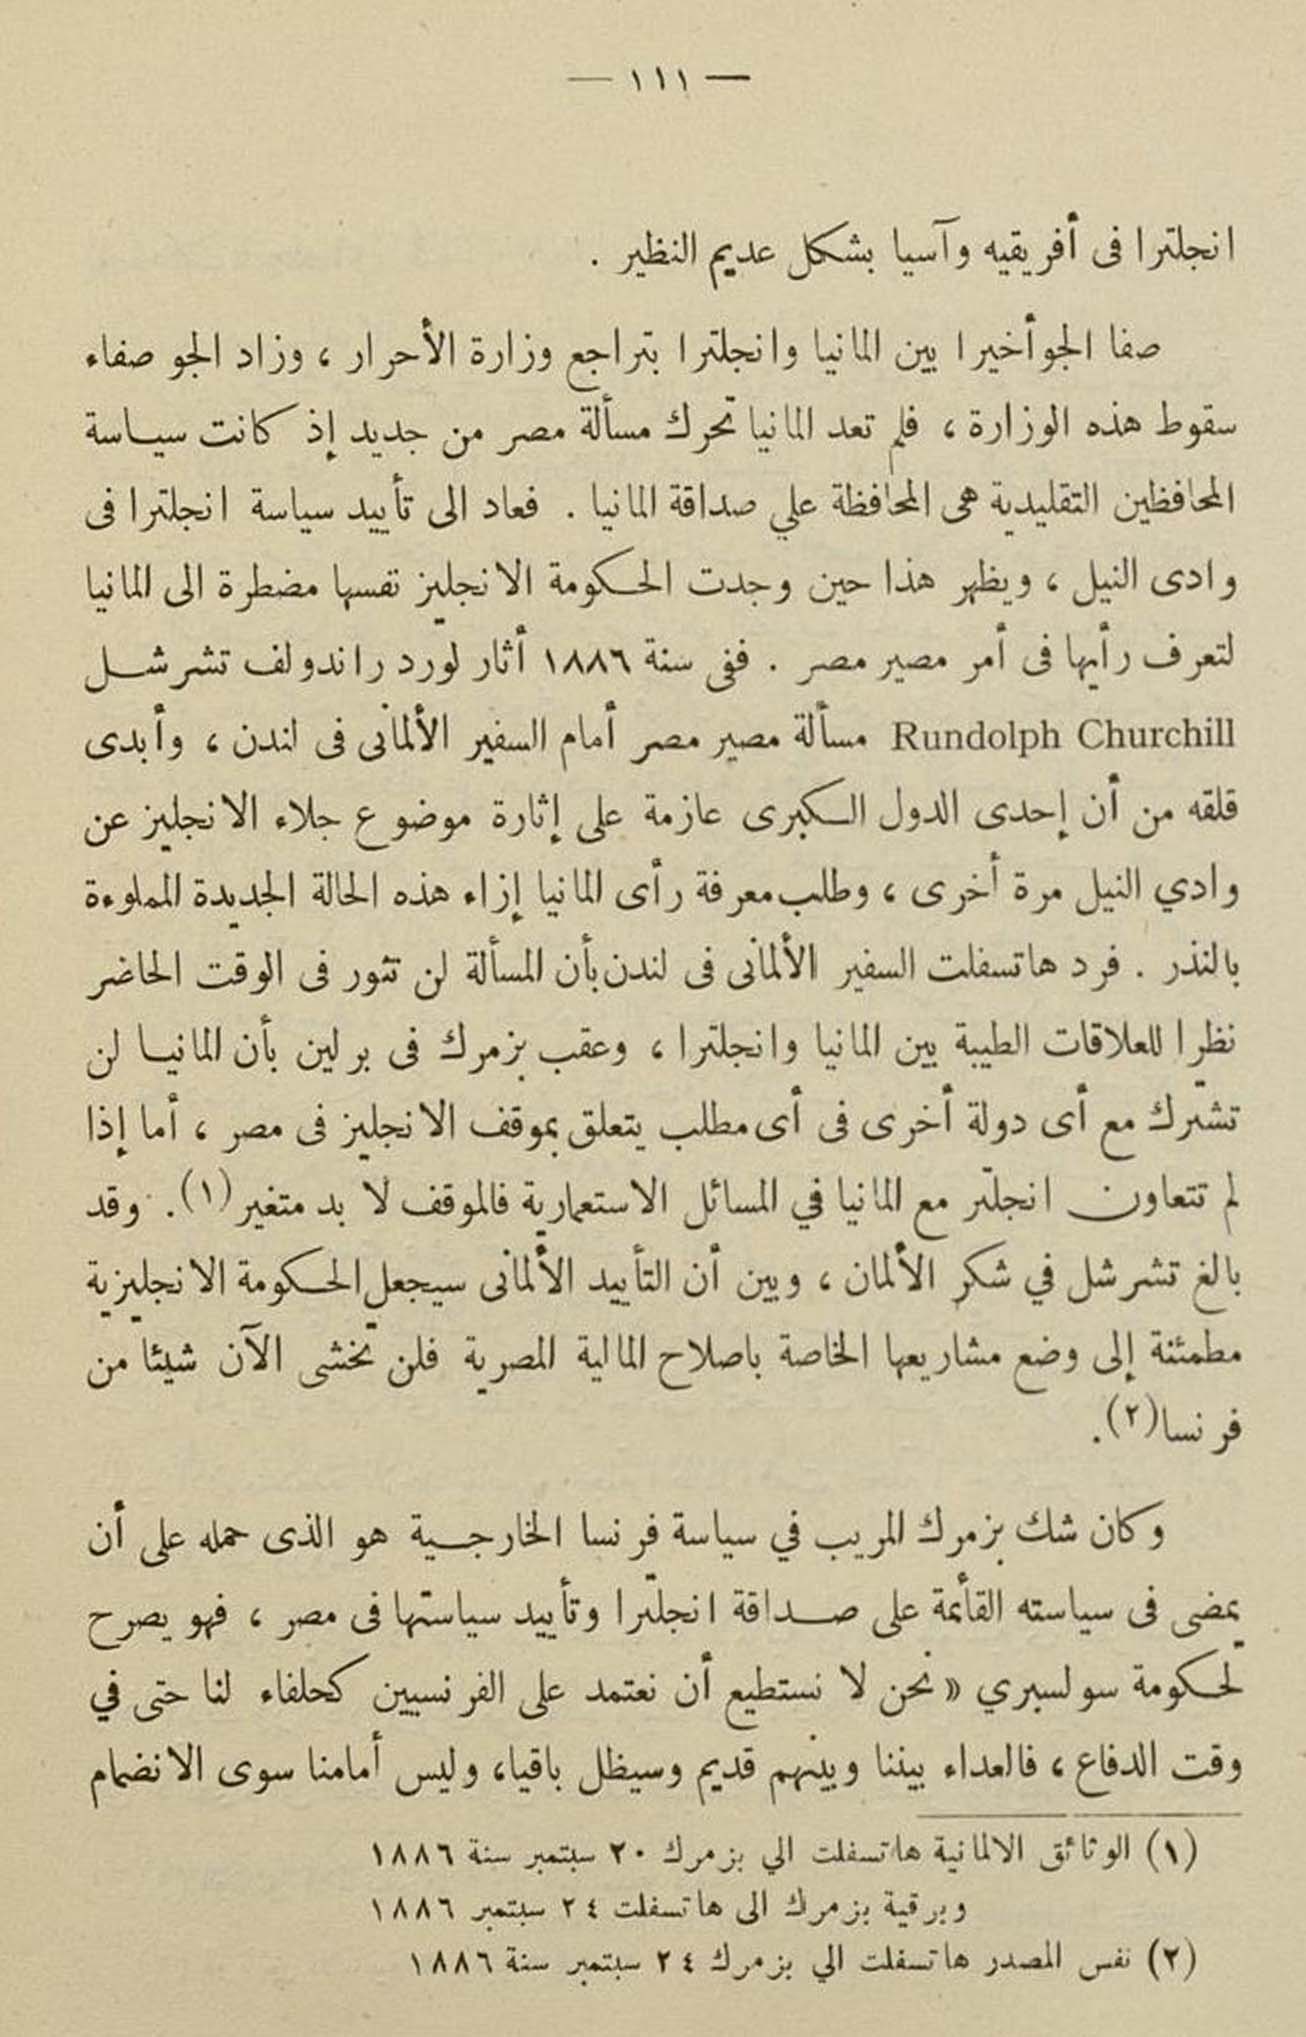 — ١١١ —
انجلترا فى أفريقيه وآسيا بشكل عديم النظير .
صفا الجو أخيرا بين المانيا وانجلترا بتراجع وزارة الأحرار ، وزاد الجو صفاء
سقوط هذه الوزارة ، فلم تعد المانيا تحرك مسألة مصر من جديد إذ كانت سياسة
المحافظين التقليدية هى المحافظة علي صداقة المانيا . فعاد الى تأييد سياسة انجلترا فى
وادى النيل ، ويظهر هذا حين وجدت الحكومة الانجليز نفسها مضطرة الى المانيا
لتعرف رأيها فى أمر مصير مصر . ففى سنة ١٨٨٦ أثار لورد راندولف تشرشل
Rundolph Churchill مسألة مصير مصر أمام السفير الألمانى فى لندن ، وأبدى
قلقه من أن إحدى الدول الكبرى عازمة على إثارة موضوع جلاء الانجليز عن
وادي النيل مرة أخرى ، وطلب معرفة رأى المانيا إزاء هذه الحالة الجديدة المملوءة
بالنذر . فرد هاتسفلت السفير الألمانى فى لندن بأن المسألة لن تثور فى الوقت الحاضر
نظرا للعلاقات الطيبة بين المانيا وانجلترا ، وعقب بزمرك فى برلين بأن المانيا لن
تشترك مع أى دولة أخرى فى أى مطلب يتعلق بموقف الانجليز فى مصر ، أما إذا
لم تتعاون انجلتر مع المانيا في المسائل الاستعمارية فالموقف لا بد متغير (١) . وقد
بالغ تشرشل في شكر الألمان ، وبين أن التأييد الألمانى سيجعل الحكومة الانجليزية
مطمئنة إلى وضع مشاريعها الخاصة باصلاح المالية المصرية فلن تخشى الآن شيئا من
فرنسا (٢) .
وكان شك بزمرك المريب في سياسة فرنسا الخارجية هو الذى حمله على أن
يمضى فى سياسته القأئمة على صداقة انجلترا وتأييد سياستها فى مصر ، فهو يصرح
لحكومة سولسبري « نحن لا نستطيع أن نعتمد على الفرنسيين كحلفاء لنا حتى في
وقت الدفاع ، فالعداء بيننا وبينهم قديم وسيظل باقيا، وليس أمامنا سوى الانضمام
(١) الوثائق الالمانية هاتسفلت الي بزمرك ٢٠ سبتمبر سنة ١٨٨٦
وبرقية بزمرك الى هاتسفلت ٢٤ سبتمبر ١٨٨٦
(٢) نفس المصدر هاتسفلت الي بزمرك ٢٤ سبتمبر سنة ١٨٨٦